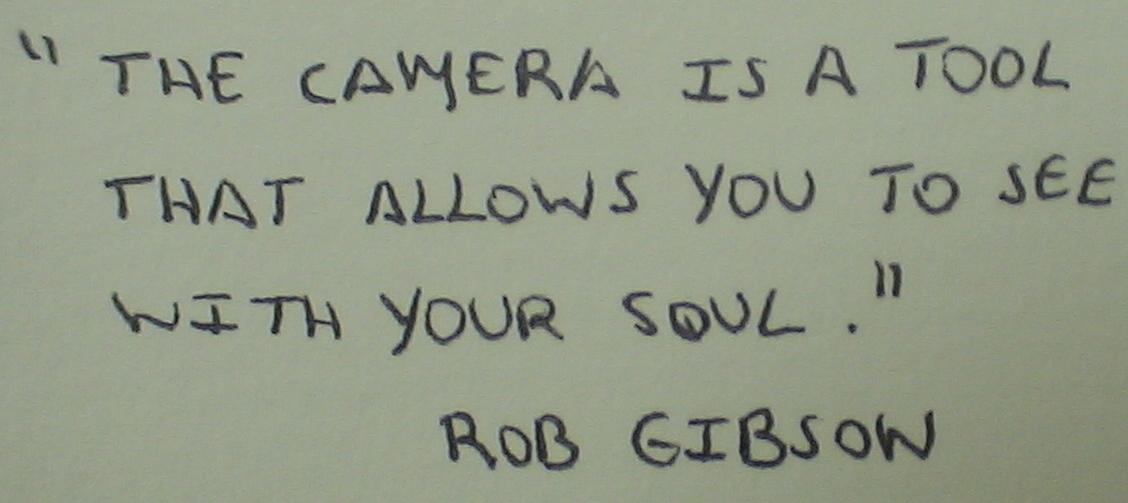 "THE CAMERA IS A TOOL
THAT ALLOWS YOU TO SEE
WITH YOUR SOUL."
ROB GIBSON